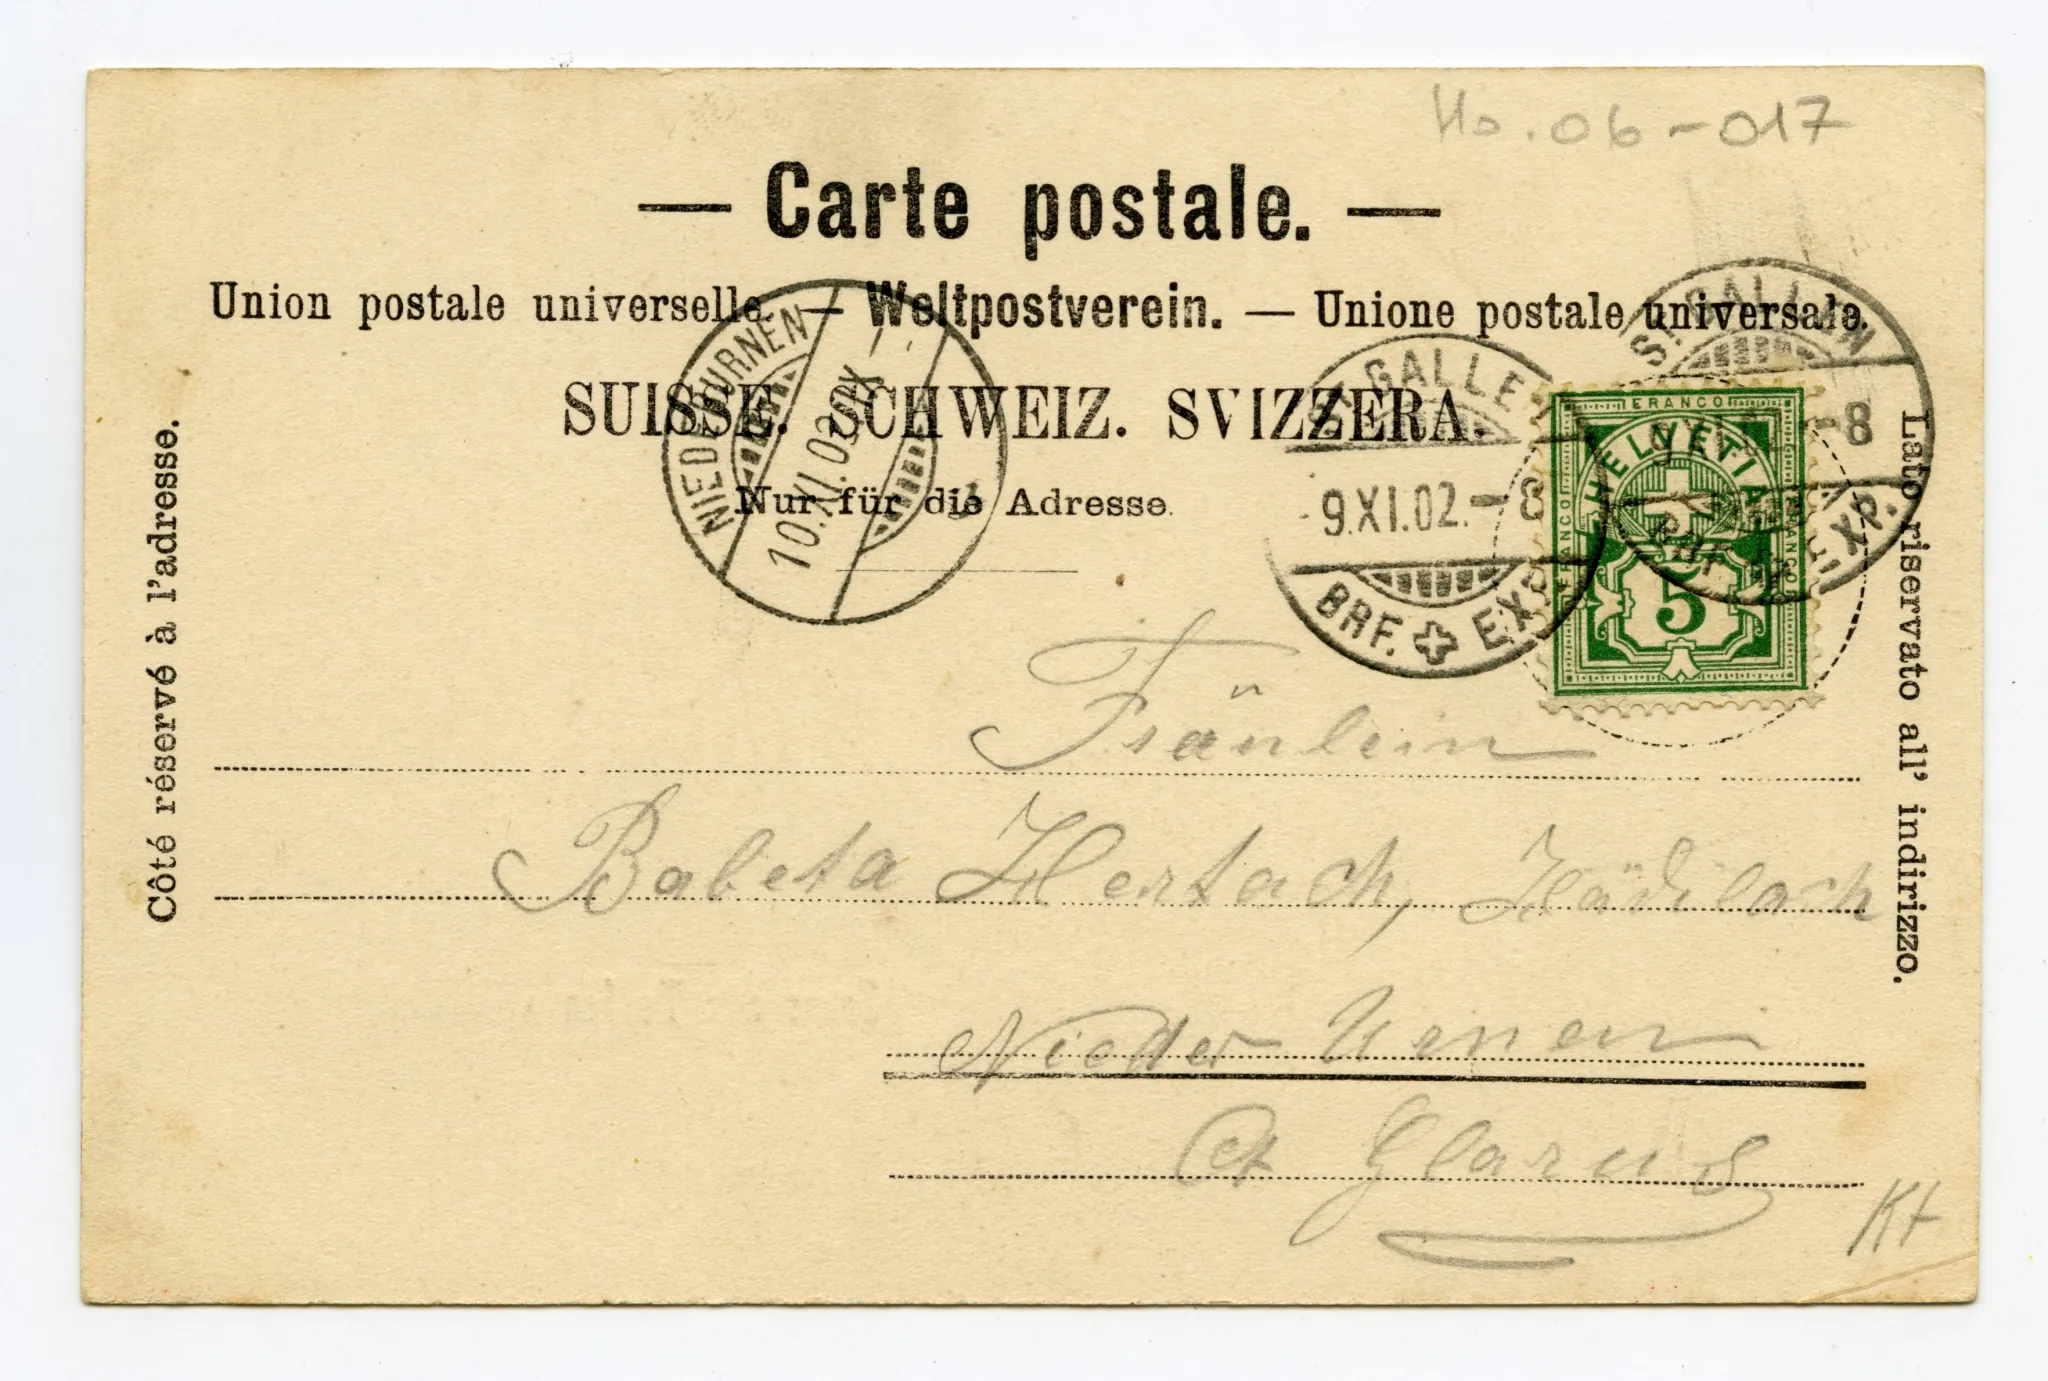 Ho. 06-017
— Carte postale. —
Union postale universelle. — Weltpostverein. — Unione postale universale.
SUISSE. SCHWEIZ. SVIZZERA.
Nur für die Adresse.
Côté réservé à l'adresse.
Lato riservato all' indirizzo.
NIEDERURNEN
10.XI.02. IX
ST. GALLEN
9.XI.02.-8
BRF. EXP.
ST. GALLEN
-8
BRF. EXP.
FRANCO
HELVETIA
FRANCO
FRANCO
5
Fräulein
Babeta Hertach,
Nieder Urnen
Ct Glarus
Kt